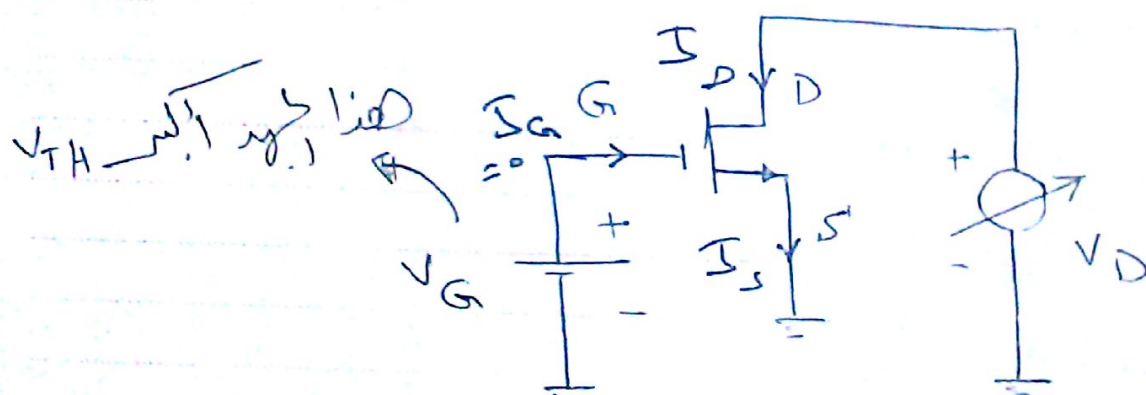 هذا الجهد أكبر V_TH
I_G = 0
G
I_D
D
V_G
+
-
I_S
S
+
-
V_D